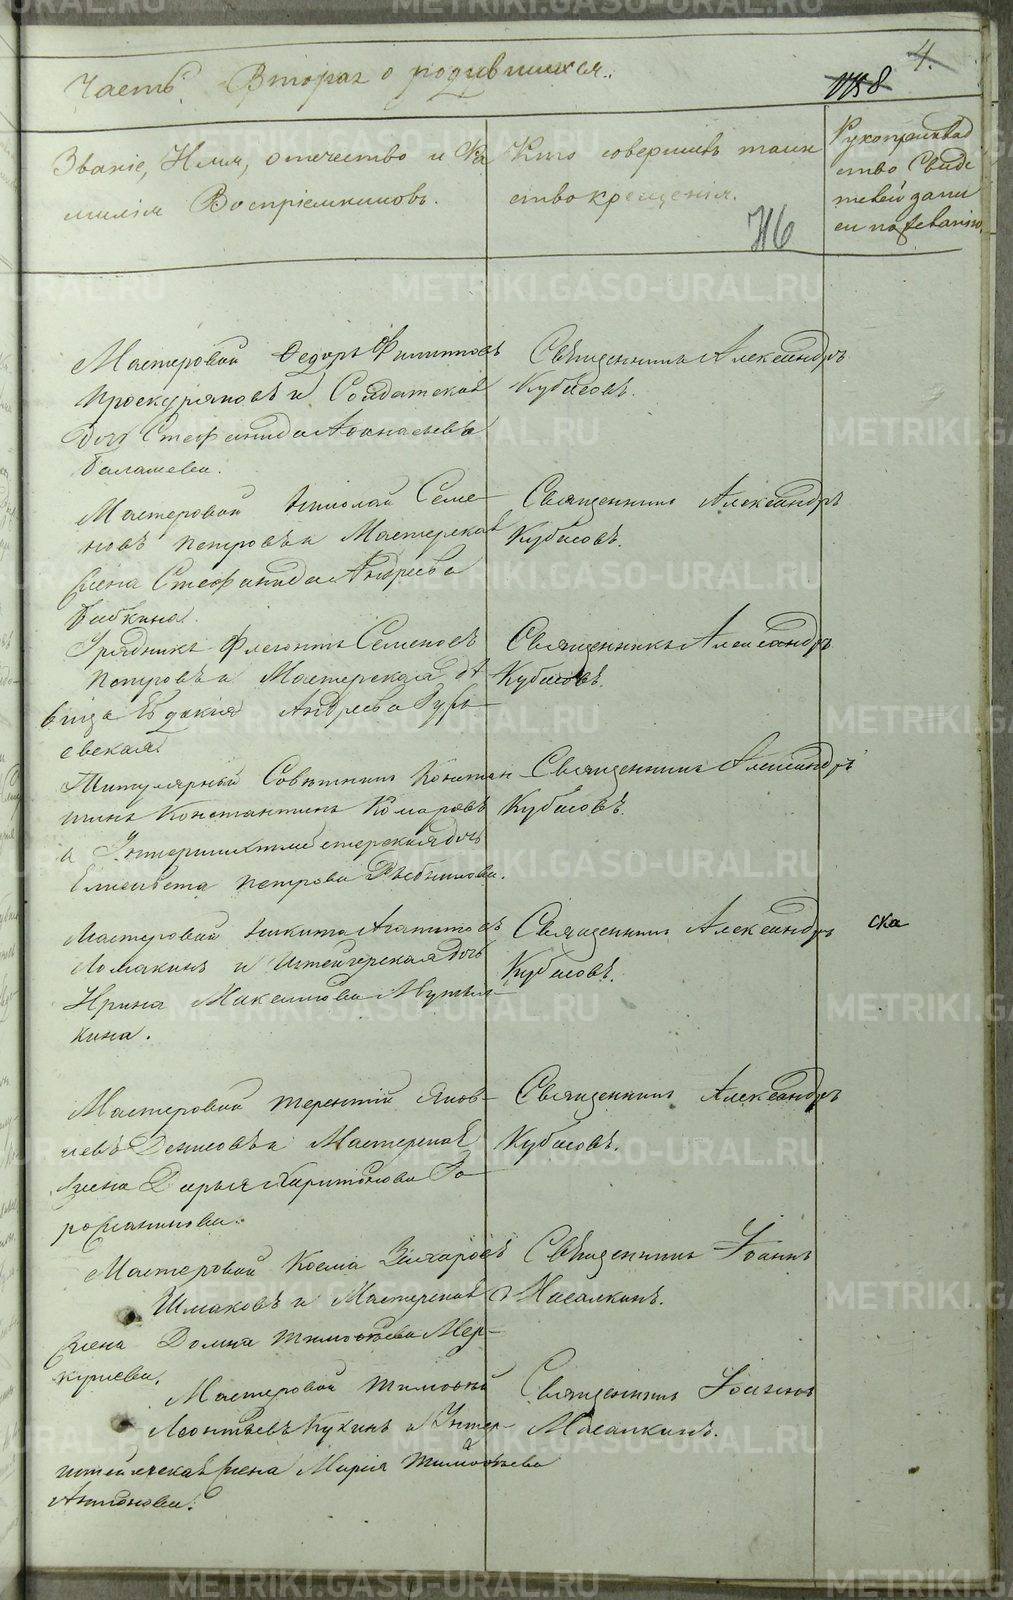 4.
Часть Вторая о родившихся.
8
Званіе, Имя, отечество и Фа
милія Воспріемниковъ.
Кто совершалъ таин
ство крещенія.
Рукоприклад
ство Свиде
телей запи
си по желанію.
116
Мастеровой Федоръ Филиповъ
Проскуряковъ и Солдатская
дочь Стефанида Афанасьева
Балашева.
Священникъ Александръ
Кубасовъ.
Мастеровой Николай Семе
новъ Петровъ и Мастерская
жена Стефанида Андреева
Бабкина.
Священникъ Александръ
Кубасовъ.
Урядникъ Флегонтъ Семеновъ
Петровъ и Мастерская дѣ
вица Евдокия Андреева Гурь
евская.
Священникъ Александръ
Кубасовъ.
Титулярный Совѣтникъ Констан
тинъ Константинъ Комаровъ
и дочь
Елисавета Петрова
Священникъ Александръ
Кубасовъ.
Мастеровой Никита Агапитовъ
Ломакинъ и Штейгерская дочь
Ирина Максимова
кина.
Священникъ Александръ
Кубасовъ.
ска
Мастеровой Терентій Яков
левъ Денисовъ и Мастерская
жена Дарья Харитонова За
рожаникова.
Священникъ Александръ
Кубасовъ.
Мастеровой Косма Захаровъ
Шмаковъ и Мастерская
жена Домна Тимофеева Мер
курьева.
Священникъ Іоаннъ
Масалкинъ.
Мастеровой Тимофей
Леонтьевъ Кукинъ и Унтер
штейгерская жена Марія Тимофѣева
Антонова.
Священникъ Іоаннъ
Масалкинъ.
METRIKI.GASO-URAL.RU